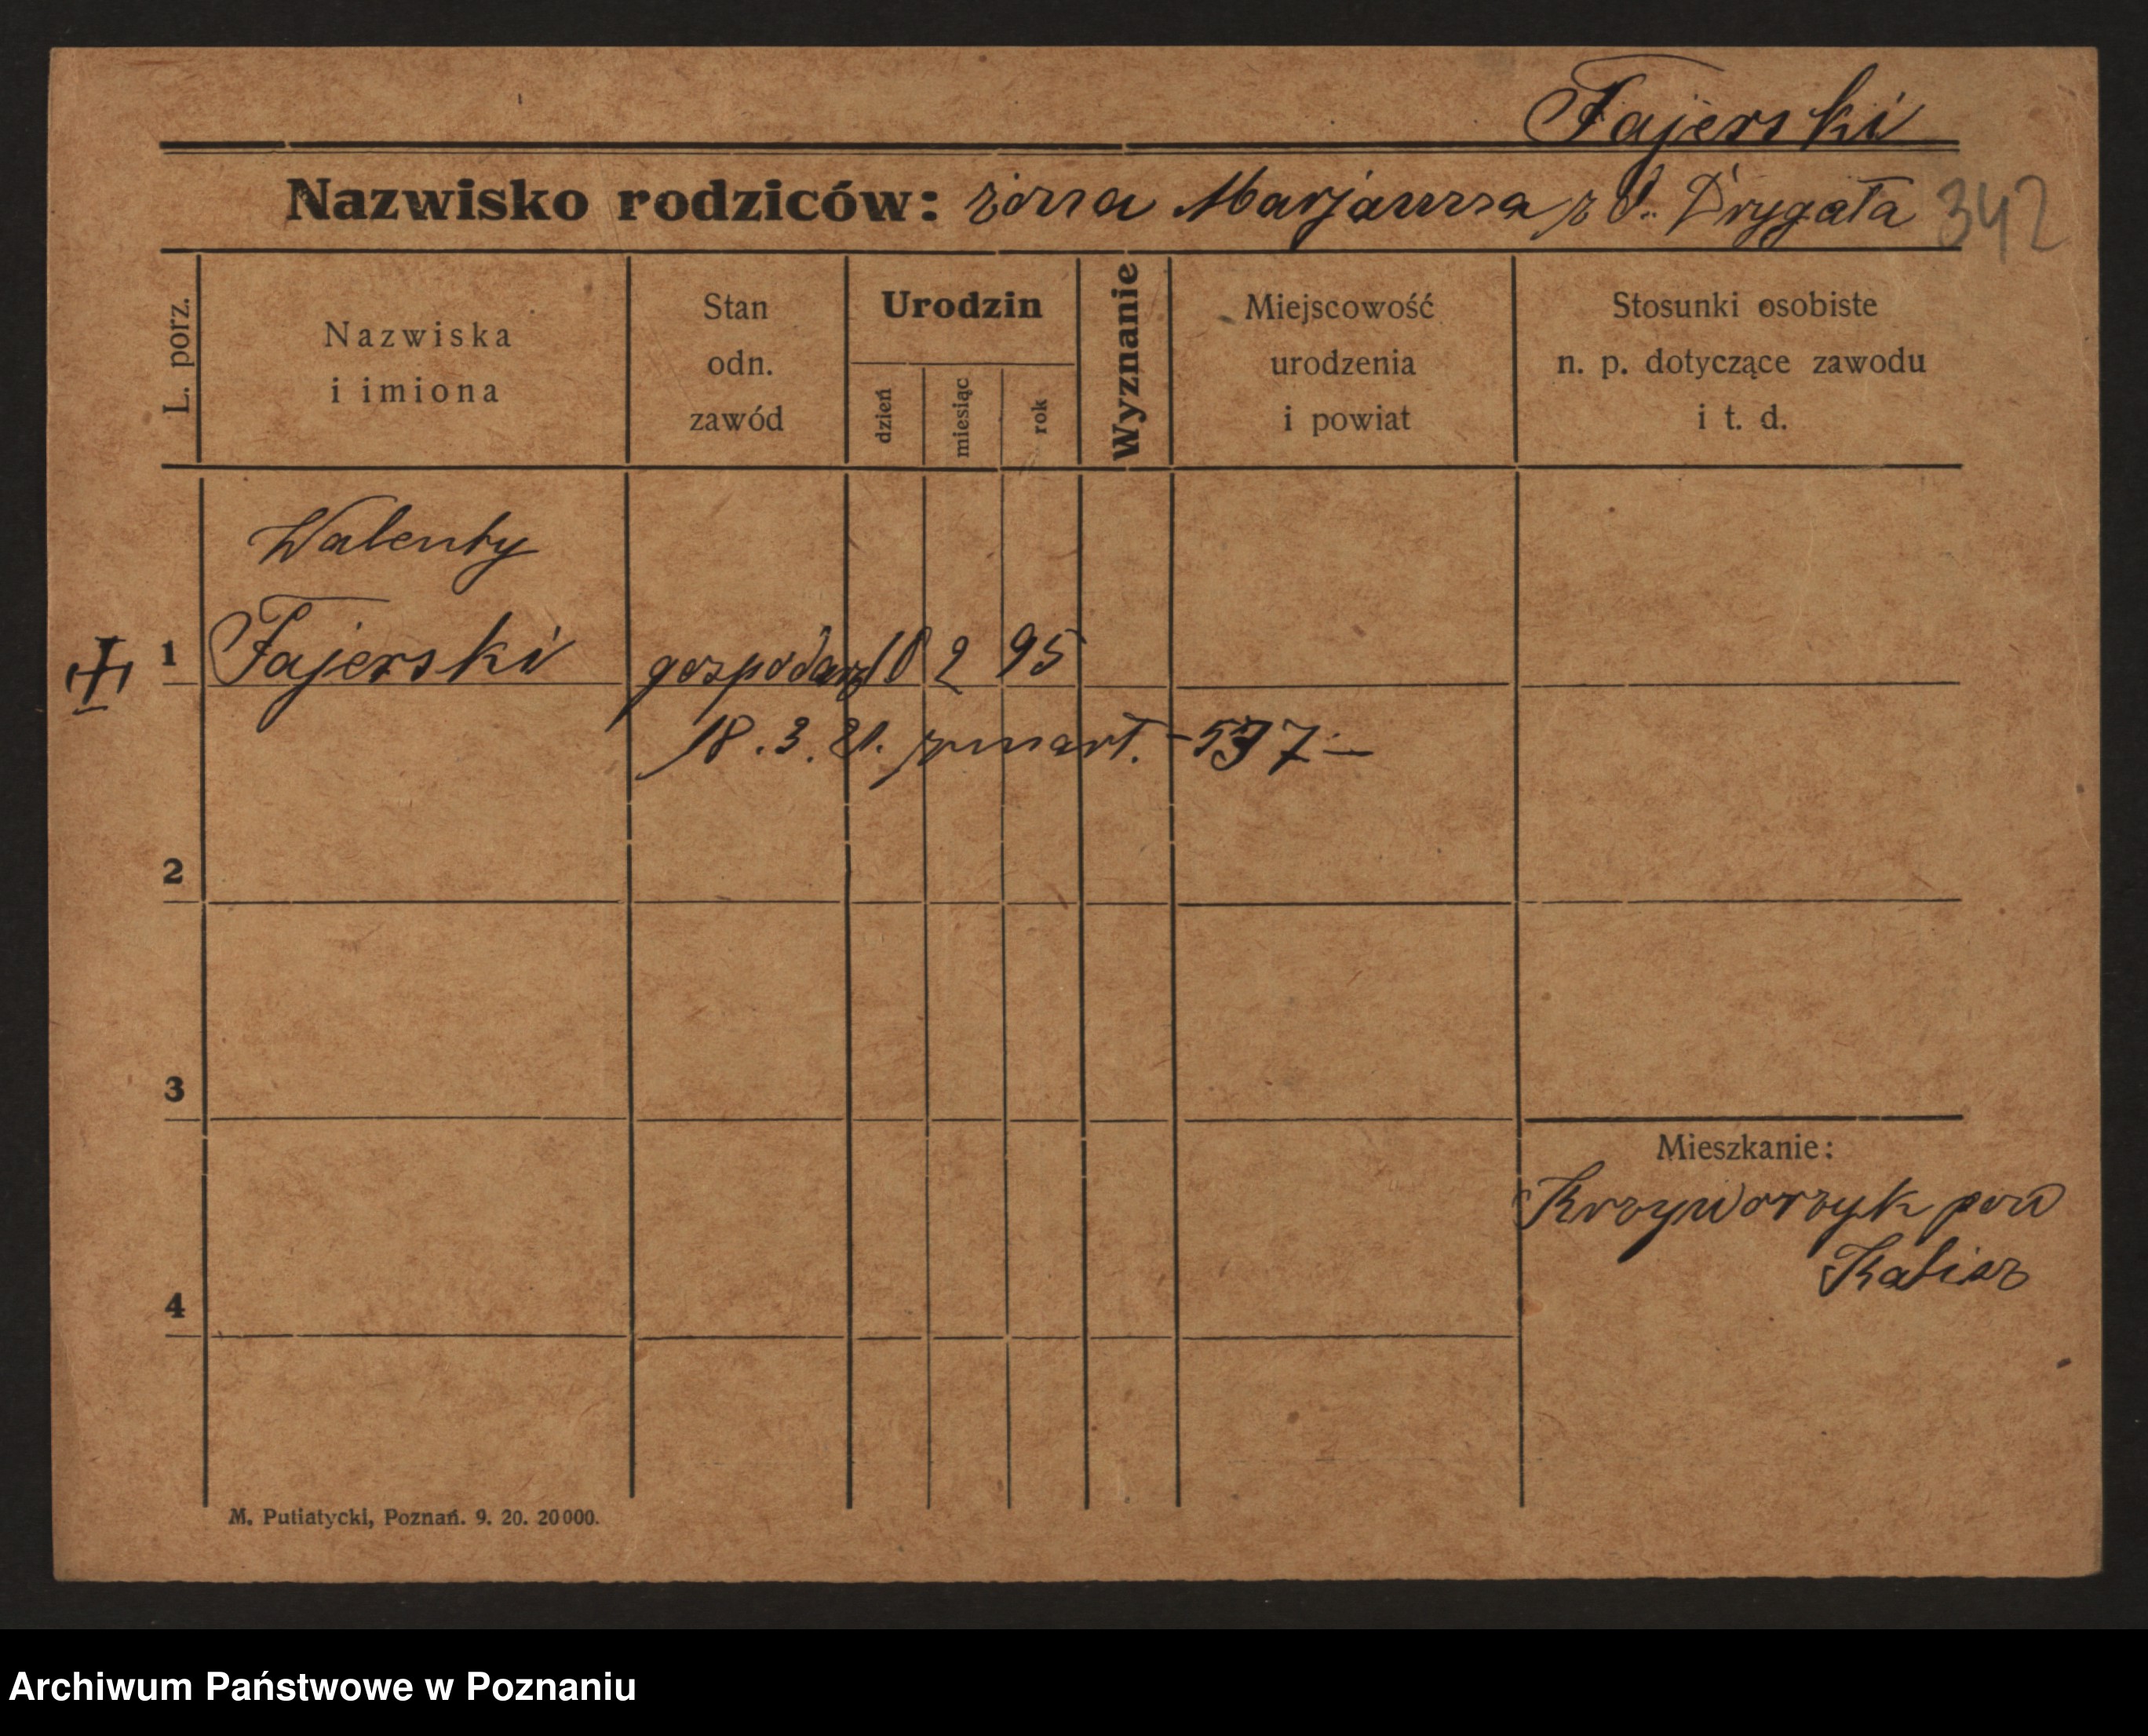 Fajerski
Nazwisko rodziców: żona Marjanna z d. Drygała 342
L. porz.
Nazwiska
i imiona
Stan
odn.
zawód
Urodzin
dzień
miesiąc
rok
Wyznanie
Miejscowość
urodzenia
i powiat
Stosunki osobiste
n. p. dotyczące zawodu
i t. d.
Walenty
1 Fajerski gospodarz 10 2 95
18.3.21. zmart. - 537 -
2
3
Mieszkanie:
Krzyworzyk pow
Kalisz
4
M. Putiatycki, Poznań. 9. 20. 20000.
Archiwum Państwowe w Poznaniu